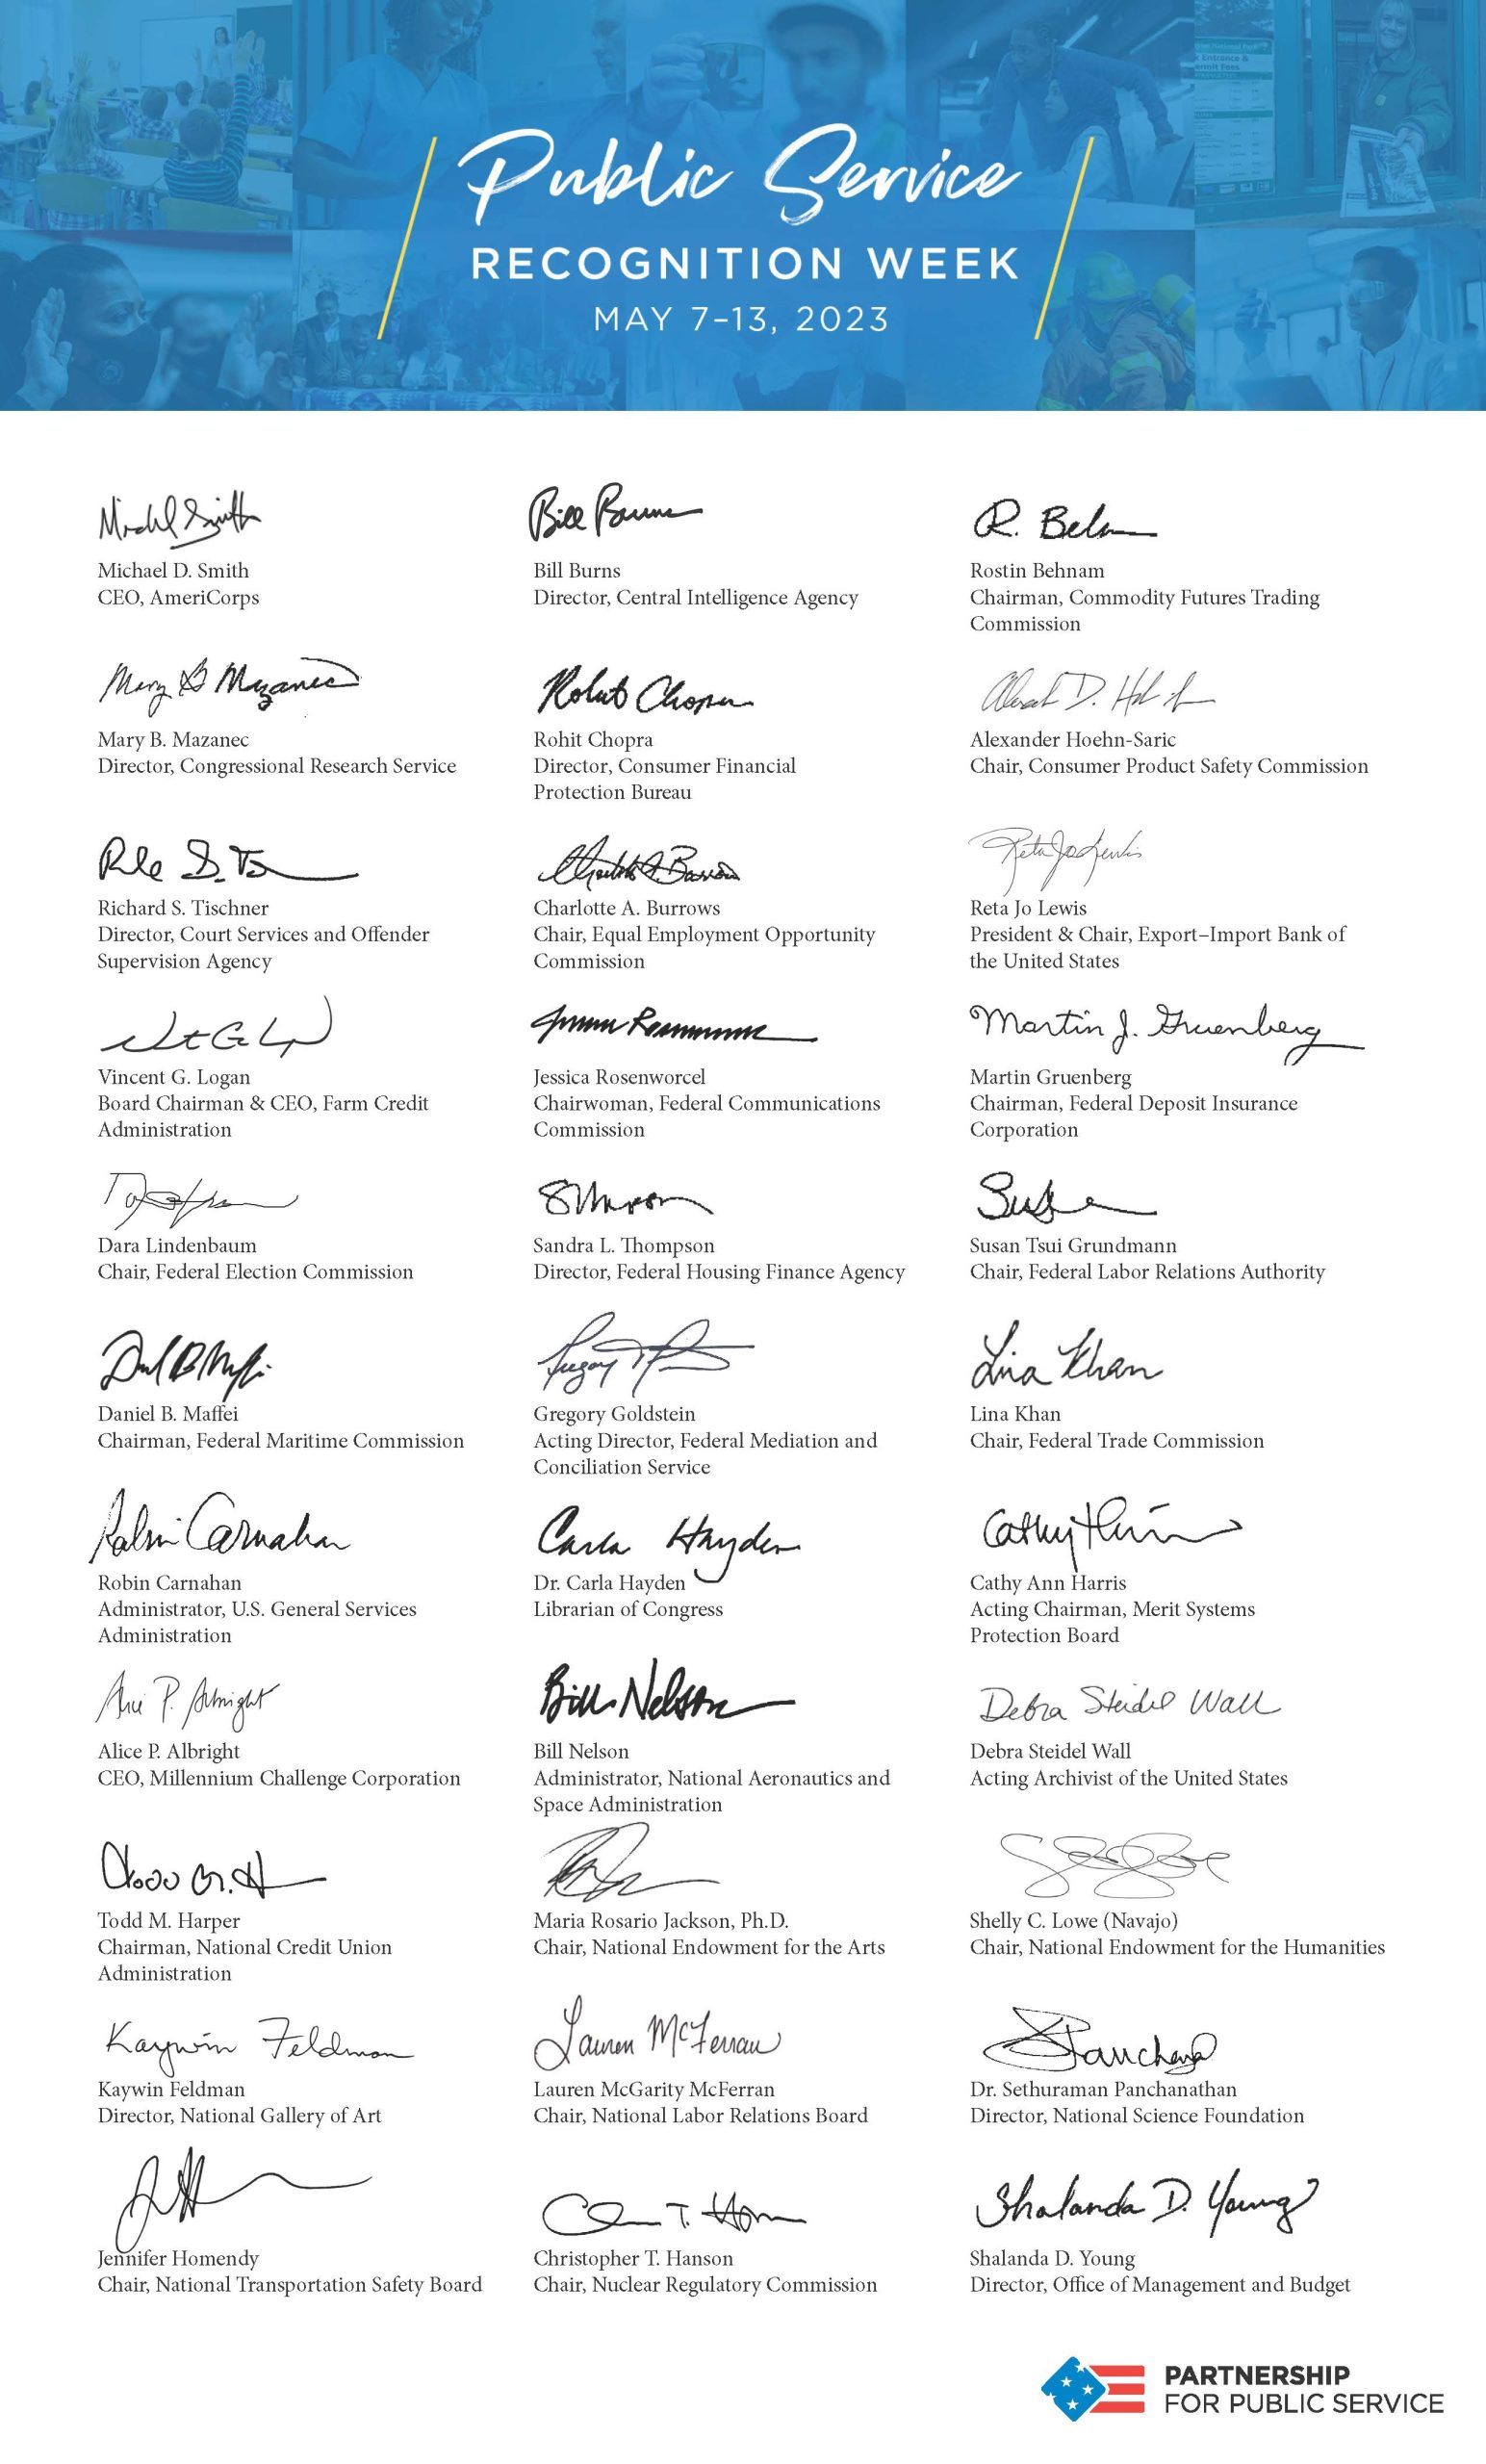 Public Service
RECOGNITION WEEK
MAY 7–13, 2023
Entrance &
Permit Fees
Michael D. Smith
CEO, AmeriCorps
Bill Burns
Bill Burns
Director, Central Intelligence Agency
R. Behn
Rostin Behnam
Chairman, Commodity Futures Trading
Commission
Mary B Mazanec
Mary B. Mazanec
Director, Congressional Research Service
Rohit Chopra
Rohit Chopra
Director, Consumer Financial
Protection Bureau
Alexander Hoehn-Saric
Chair, Consumer Product Safety Commission
Richard S. Tischner
Director, Court Services and Offender
Supervision Agency
Charlotte A. Burrows
Chair, Equal Employment Opportunity
Commission
Reta Jo Lewis
Reta Jo Lewis
President & Chair, Export–Import Bank of
the United States
Vincent G. Logan
Board Chairman & CEO, Farm Credit
Administration
Jessica Rosenworcel
Chairwoman, Federal Communications
Commission
Martin J. Gruenberg
Martin Gruenberg
Chairman, Federal Deposit Insurance
Corporation
Dara Lindenbaum
Chair, Federal Election Commission
Sandra L. Thompson
Director, Federal Housing Finance Agency
Susan Tsui Grundmann
Chair, Federal Labor Relations Authority
Daniel B. Maffei
Chairman, Federal Maritime Commission
Gregory Goldstein
Acting Director, Federal Mediation and
Conciliation Service
Lina Khan
Lina Khan
Chair, Federal Trade Commission
Robin Carnahan
Robin Carnahan
Administrator, U.S. General Services
Administration
Carla Hayden
Dr. Carla Hayden
Librarian of Congress
Cathy Ann Harris
Acting Chairman, Merit Systems
Protection Board
Alice P. Albright
Alice P. Albright
CEO, Millennium Challenge Corporation
Bill Nelson
Bill Nelson
Administrator, National Aeronautics and
Space Administration
Debra Steidel Wall
Debra Steidel Wall
Acting Archivist of the United States
Todd M. Harper
Chairman, National Credit Union
Administration
Maria Rosario Jackson, Ph.D.
Chair, National Endowment for the Arts
Shelly C. Lowe (Navajo)
Chair, National Endowment for the Humanities
Kaywin Feldman
Kaywin Feldman
Director, National Gallery of Art
Lauren McFerran
Lauren McGarity McFerran
Chair, National Labor Relations Board
Dr. Sethuraman Panchanathan
Director, National Science Foundation
Jennifer Homendy
Chair, National Transportation Safety Board
Christopher T. Hanson
Chair, Nuclear Regulatory Commission
Shalanda D. Young
Shalanda D. Young
Director, Office of Management and Budget
PARTNERSHIP
FOR PUBLIC SERVICE